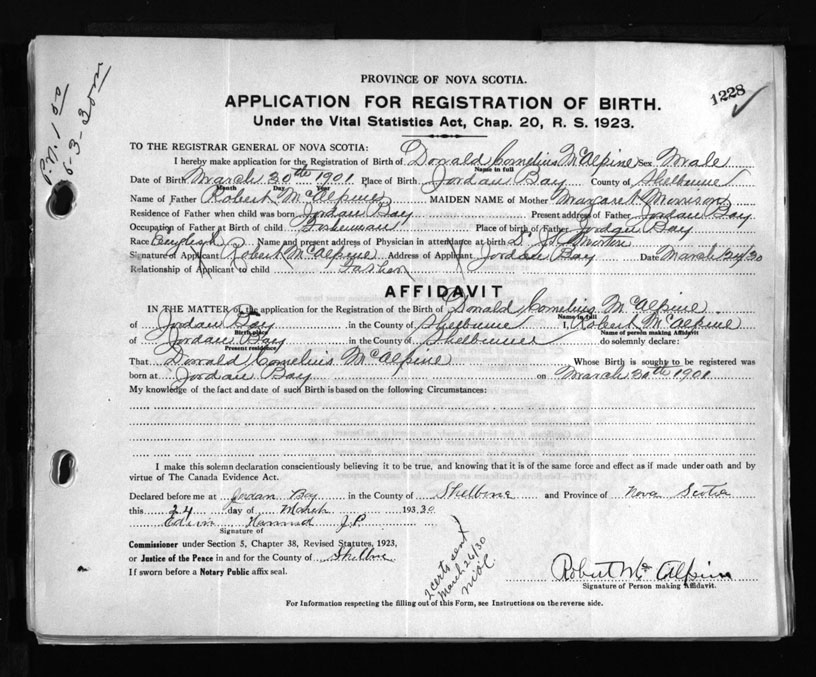 PROVINCE OF NOVA SCOTIA.
1228
APPLICATION FOR REGISTRATION OF BIRTH.
Under the Vital Statistics Act, Chap. 20, R. S. 1923.
P.N. 1 00
6-3-30
TO THE REGISTRAR GENERAL OF NOVA SCOTIA:
I hereby make application for the Registration of Birth of Donald Cornelius McAlpine Sex Male
Name in full
Date of Birth March 30th 1901 Place of Birth Jordan Bay County of Shelburne
Month Day Year
Name of Father Robert McAlpine MAIDEN NAME of Mother Margaret Morrison
Residence of Father when child was born Jordan Bay Present address of Father Jordan Bay
Occupation of Father at Birth of child Fisherman Place of birth of Father Jordan Bay
Race English Name and present address of Physician in attendance at birth Morton
Signature of Applicant Robert McAlpine Address of Applicant Jordan Bay Date March 24/30
Relationship of Applicant to child Father
AFFIDAVIT
IN THE MATTER of the application for the Registration of the Birth of Donald Cornelius McAlpine
Name in full
of Jordan Bay in the County of Shelburne I, Robert McAlpine
Birth place Name of person making Affidavit
of Jordan Bay in the County of Shelburne do solemnly declare:
Present residence
That Donald Cornelius McAlpine Whose Birth is sought to be registered was
born at Jordan Bay on March 30th 1901
My knowledge of the fact and date of such Birth is based on the following Circumstances:
I make this solemn declaration conscientiously believing it to be true, and knowing that it is of the same force and effect as if made under oath and by
virtue of The Canada Evidence Act.
Declared before me at Jordan Bay in the County of Shelbrne and Province of Nova Scotia
this 24 day of March 193 30
Edwin Hammod J.P
Signature of
Commissioner under Section 5, Chapter 38, Revised Statutes, 1923,
or Justice of the Peace in and for the County of Shelbrne
If sworn before a Notary Public affix seal.
2 certs sent
March 26/30
Robert Mc Alpine
Signature of Person making Affidavit.
For Information respecting the filling out of this Form, see Instructions on the reverse side.